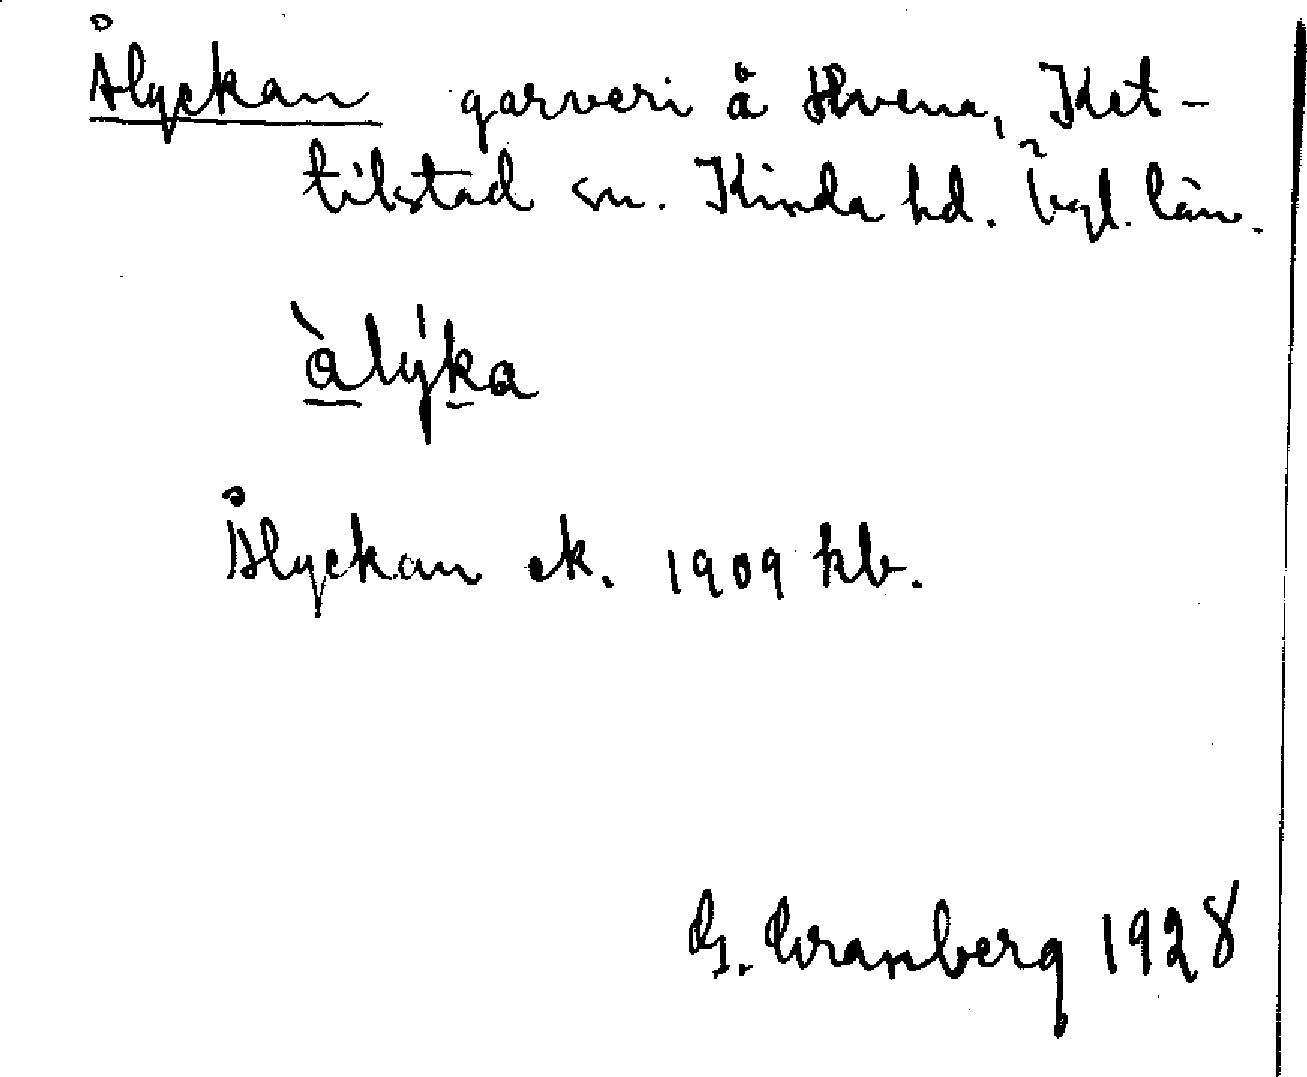 Ålyckan garveri å Hvena, Ket-
tilstad sn. Kinda hd. Ögl. län.
àlýka
Ålyckan ek. 1909 kb.
G. Cranberg 1928